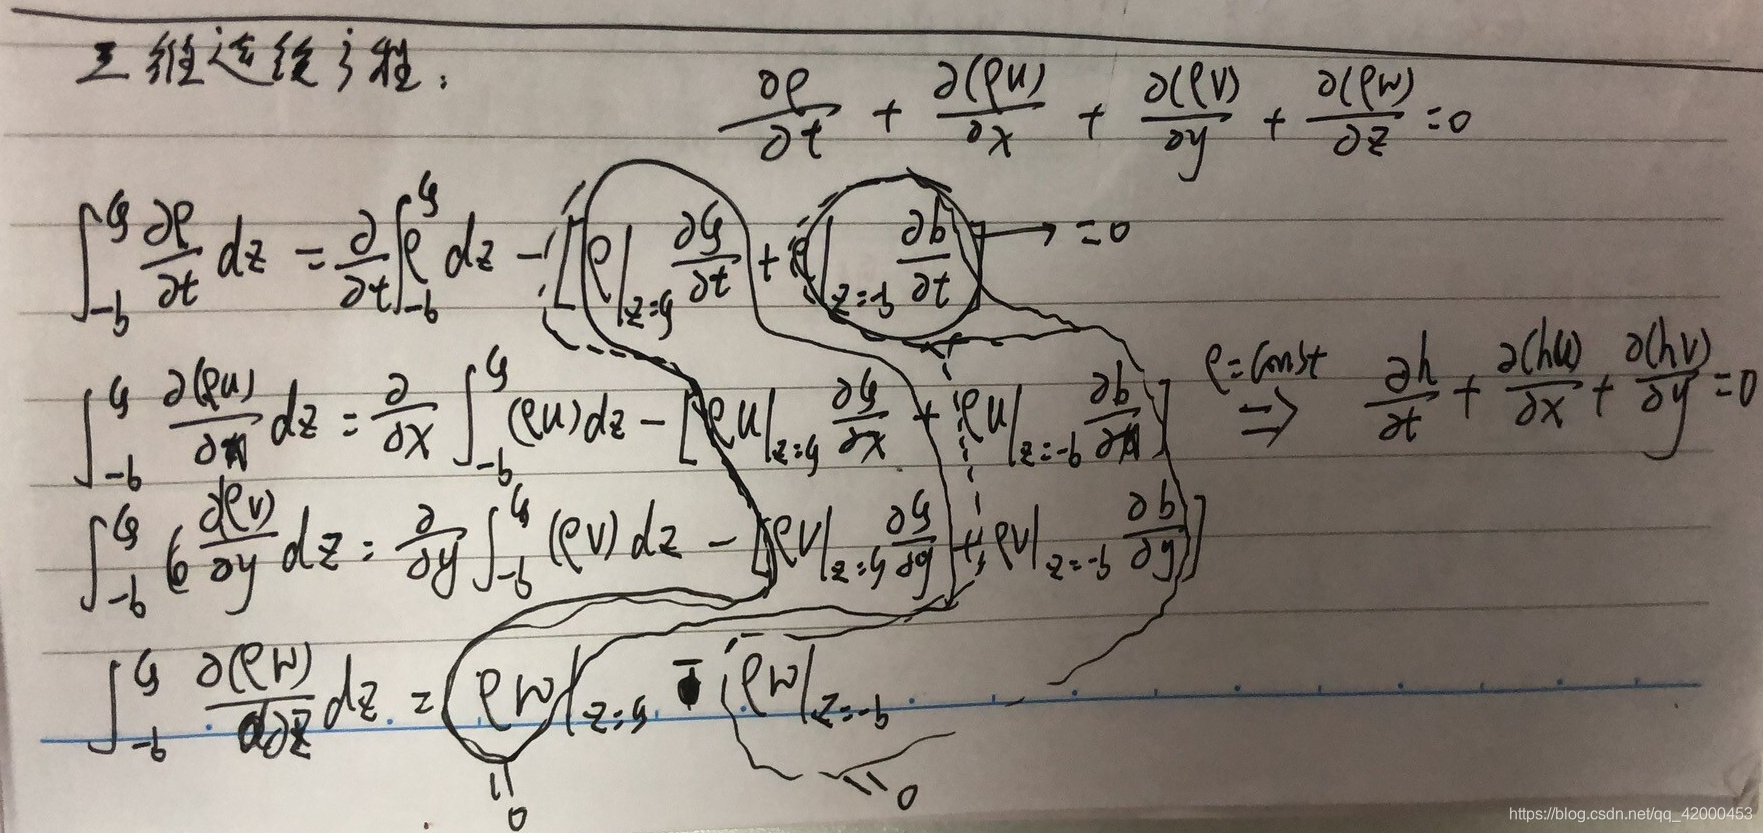 三维连续方程:
∂ρ/∂t + ∂(ρu)/∂x + ∂(ρv)/∂y + ∂(ρw)/∂z = 0
∫_{-b}^{ζ} ∂ρ/∂t dz = ∂/∂t ∫_{-b}^{ζ} ρ dz - [ρ|_{z=ζ} ∂ζ/∂t + ρ|_{z=-b} ∂b/∂t] → = 0
∫_{-b}^{ζ} ∂(ρu)/∂x dz = ∂/∂x ∫_{-b}^{ζ} (ρu) dz - [ρu|_{z=ζ} ∂ζ/∂x + ρu|_{z=-b} ∂b/∂x] ρ=const ⇒ ∂h/∂t + ∂(hu)/∂x + ∂(hv)/∂y = 0
∫_{-b}^{ζ} ∂(ρv)/∂y dz = ∂/∂y ∫_{-b}^{ζ} (ρv) dz - [ρv|_{z=ζ} ∂ζ/∂y + ρv|_{z=-b} ∂b/∂y]
∫_{-b}^{ζ} ∂(ρw)/∂z dz = ρw|_{z=ζ} - ρw|_{z=-b}
=0 =0
https://blog.csdn.net/qq_42000453